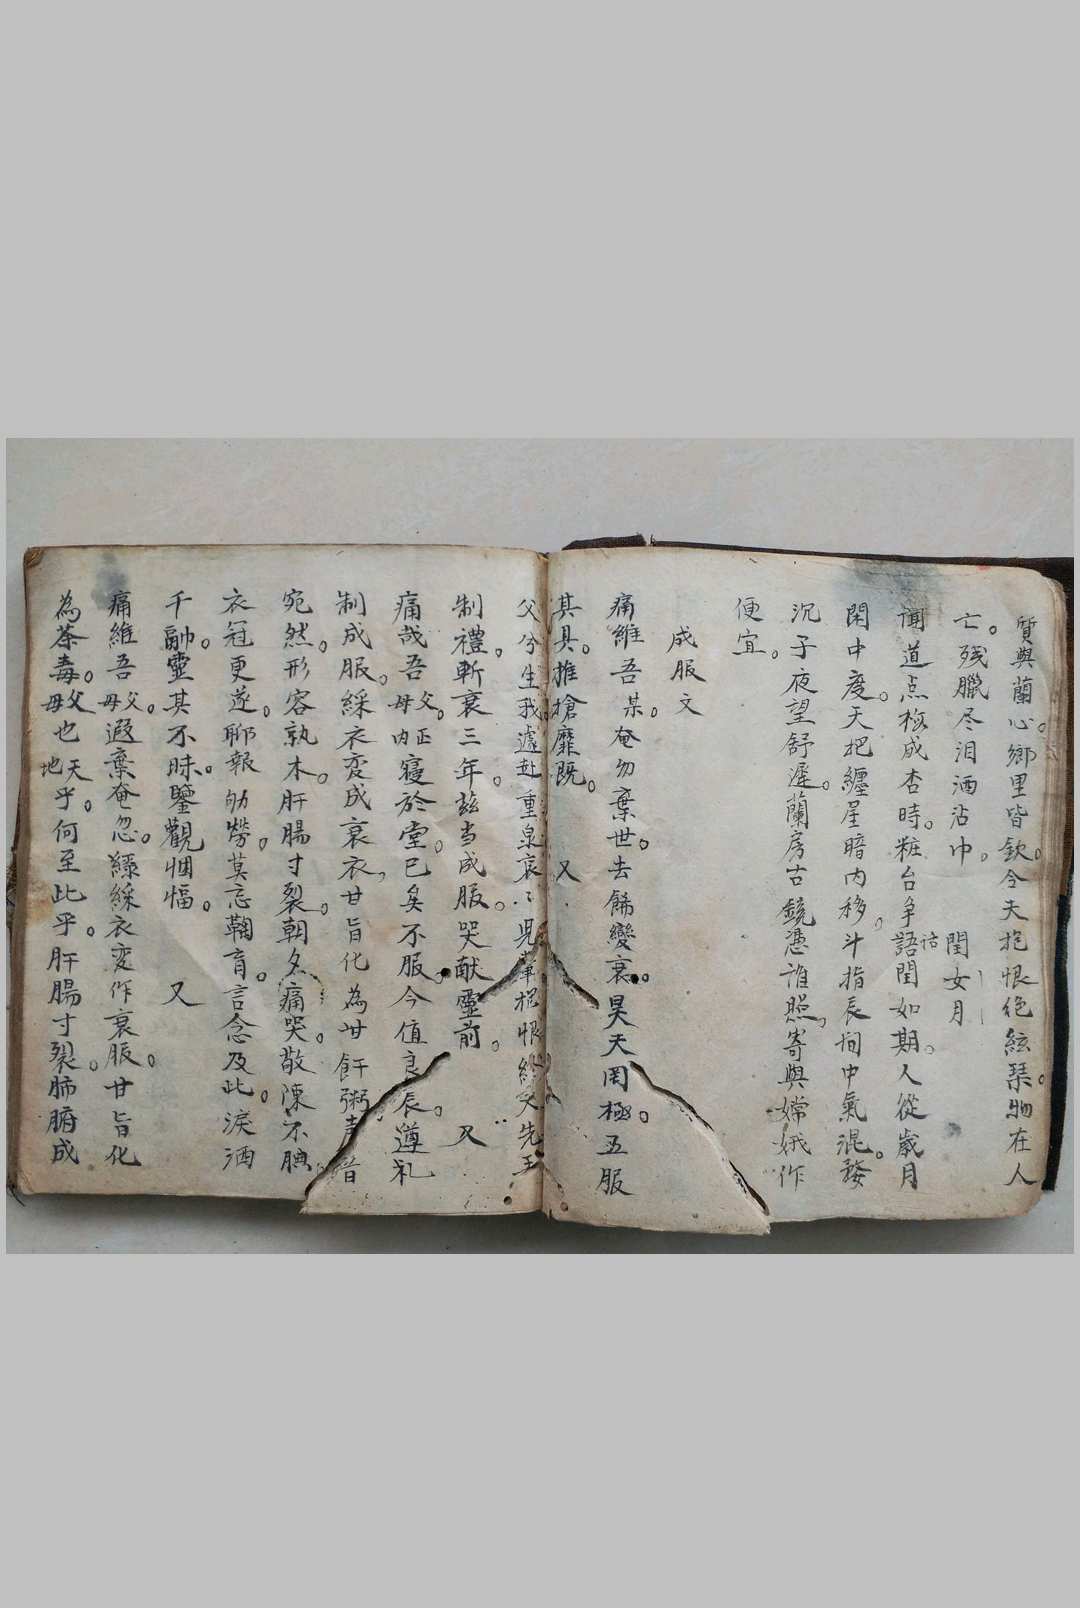 質與蘭心。鄉里皆欽。今天抱恨絕絃琹。物在人
亡。残臘尽泪洒沾巾。 閏女月
聞道点梅成杏時。粧台争詁語閏如期。人從歲月
閑中度。天把纏星暗内移。斗指辰间中氣混。發
沉子夜望舒遲。蘭房古鏡憑誰照，寄與嫦娥作
便宜。
成服文
痛維吾某。奄勿棄世。去餙變衰。昊天罔極。五服
其具。推槍靡既。 又
父兮生我。遽赴重泉哀々児軰抱恨終天先王
制禮。斬衰三年。兹当成服。哭献靈前。 又
痛哉吾父母。正内寝於堂。已矣不服。今值良辰。遵礼
制成服。綵衣変成衰衣，甘旨化為啙飦粥，声音
宛然。形容孰木。肝腸寸裂。朝夕痛哭。敬陳不腆。
衣冠更遂。聊報劬勞。莫忘鞠育。言念及此。淚洒
千翻。靈其不昧。鑒觀悃愊。 又
痛維吾父母。遐棄奄忽。綵衣変作衰服。甘旨化
為荼毒。父母也天地乎。何至此乎。肝腸寸裂。肺腑成